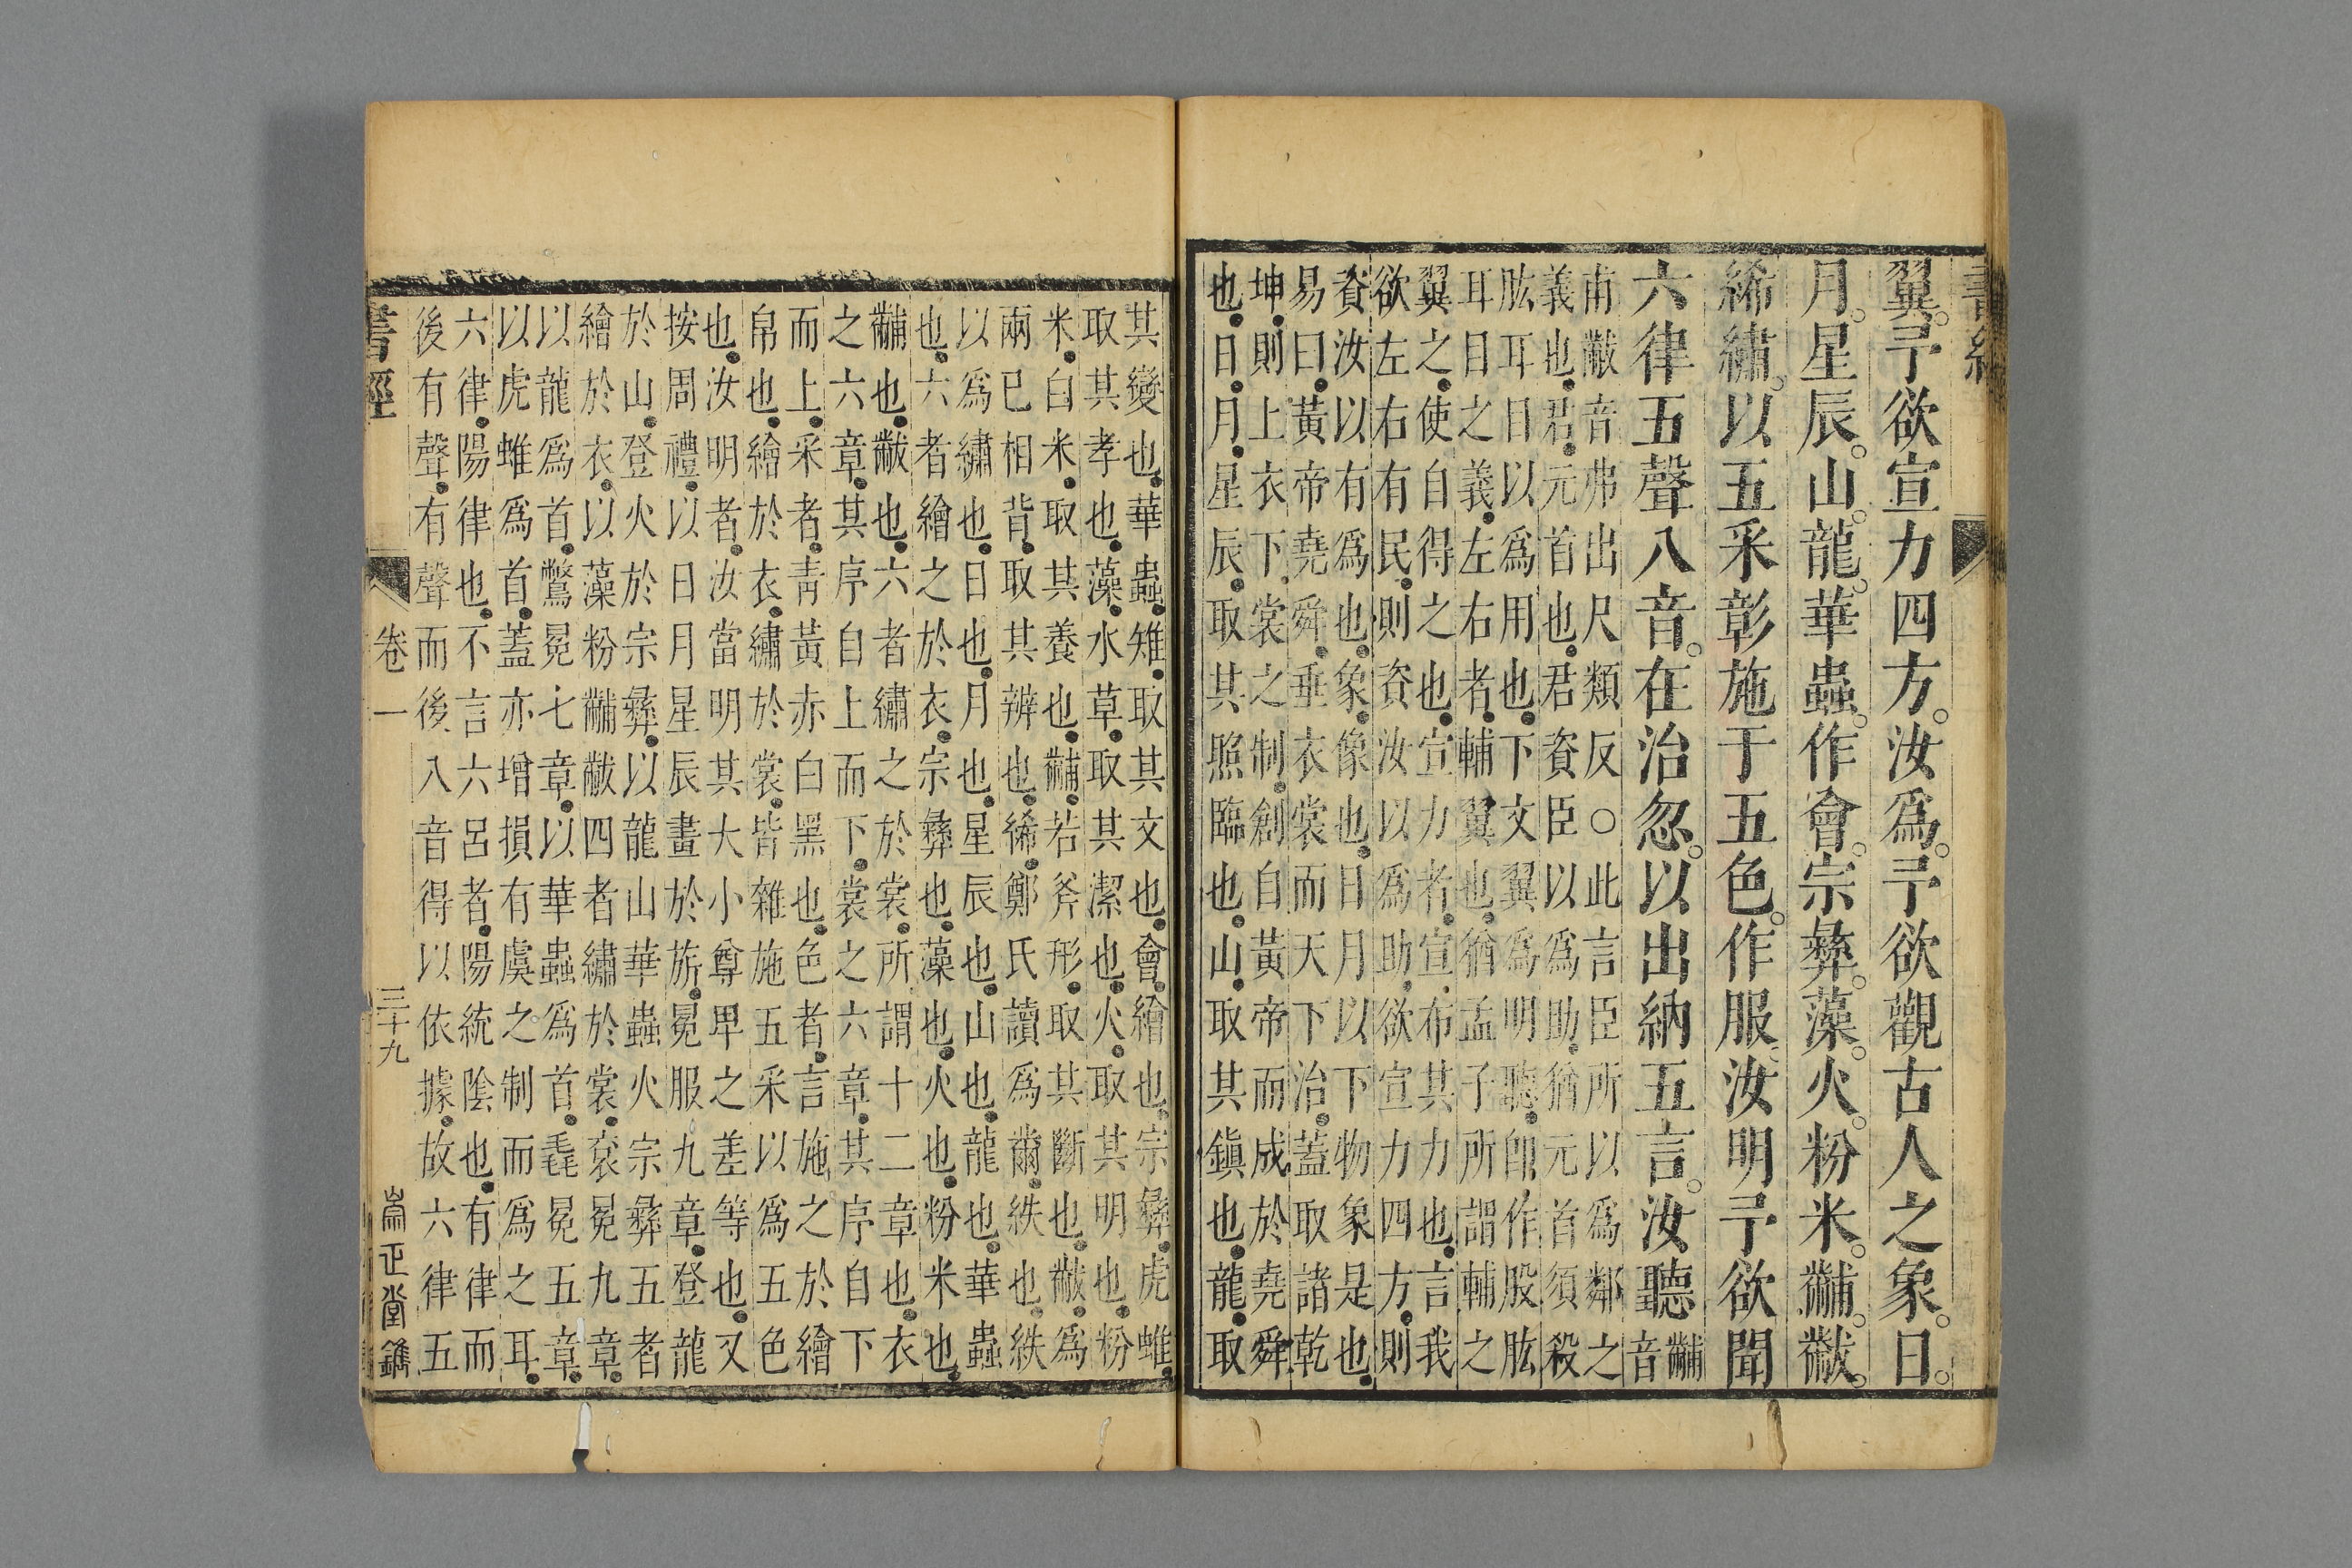 翼。予欲宣力四方。汝爲。予欲觀古人之象。日。
月。星辰。山。龍。華蟲。作會。宗彝。藻。火。粉米。黼。黻。
絺繡。以五采彰施于五色。作服。汝明。予欲聞
六律五聲八音。在治忽。以出納五言。汝聽 黼
音
甫黻音弗出尺類反〇此言臣所以爲鄰之
義也。君元首也。君資臣以爲助。猶元首須股
肱耳目以爲用也。下文翼爲明聽。卽作股肱
耳目之義。左右者。輔翼也。猶孟子所謂輔之
翼之。使自得之也。宣力者。宣布其力也。言我
欲左右有民。則資汝以爲助。欲宣力四方。則
資汝以有爲也。象。像也。日月以下物象是也。
易曰。黃帝堯舜。垂衣裳而天下治。蓋取諸乾
坤。則上衣下裳之制。創自黃帝而成於堯舜
也。日。月。星辰。取其照臨也。山。取其鎮也。龍。取
其變也。華蟲。雉。取其文也。會。繪也。宗彝。虎蜼。
取其孝也。藻。水草。取其潔也。火。取其明也。粉
米。白米。取其養也。黼。若斧形。取其斷也。黻。爲
兩已相背。取其辨也。絺。鄭氏讀爲黹。紩也。紩
以爲繡也。日也。月也。星辰也。山也。龍也。華蟲
也。六者繪之於衣。宗彝也。藻也。火也。粉米也。
黼也。黻也。六者繡之於裳。所謂十二章也。衣
之六章。其序自上而下。裳之六章。其序自下
而上。采者。青黃赤白黑也。色者。言施之於繒
帛也。繪於衣。繡於裳。皆雜施五采以爲五色
也。汝明者。汝當明其大小尊卑之差等也。又
按周禮。以日月星辰畫於旂。冕服九章。登龍
於山。登火於宗彝。以龍山華蟲火宗彝五者
繪於衣。以藻粉黼黻四者繡於裳。袞冕九章。
以龍爲首。鷩冕七章。以華蟲爲首。毳冕五章。
以虎蜼爲首。蓋亦增損有虞之制而爲之耳。
六律。陽律也。不言六呂者。陽統陰也。有律而
後有聲。有聲而後八音得以依據。故六律五
書經 卷一 三十九 崇正堂鐫